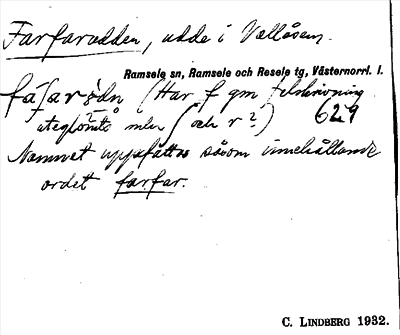 Farfarudden, udde i Vällåsen.
Ramsele sn, Ramsele och Resele tg, Västernorrl. l.
(Har f gm felskrivning 629
uteglömts mlm ſ och r?)
Namnet uppfattas såsom innehållande
ordet farfar.
C. LINDBERG 1932.